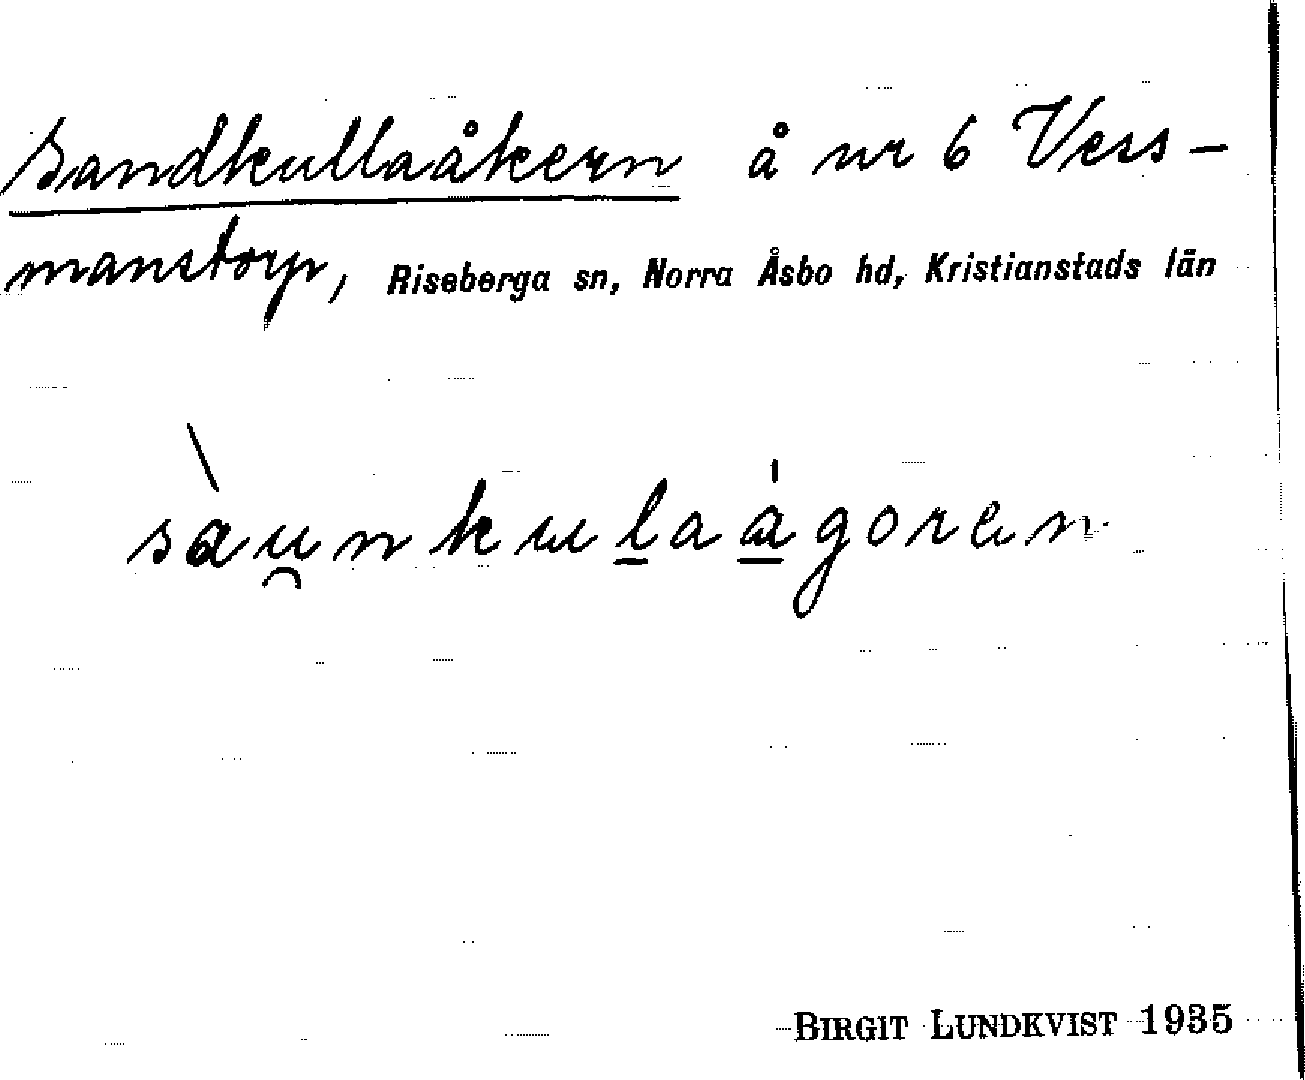 Sandkullaåkern å nr 6 Vess-
manstorp, Riseberga sn, Norra Åsbo hd, Kristianstads län
sàu̯nkul̲aá̲goren
BIRGIT LUNDKVIST 1935